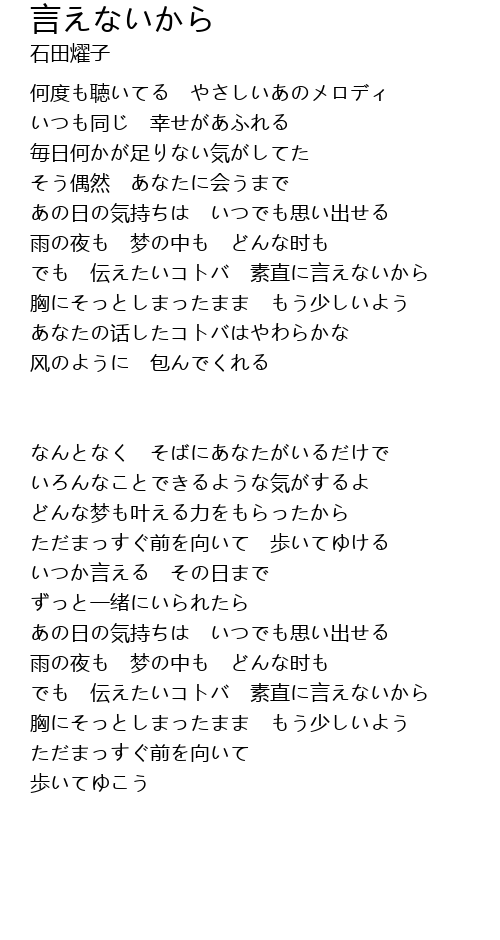 言えないから
石田燿子
何度も聴いてる　やさしいあのメロディ
いつも同じ　幸せがあふれる
毎日何かが足りない気がしてた
そう偶然　あなたに会うまで
あの日の気持ちは　いつでも思い出せる
雨の夜も　梦の中も　どんな时も
でも　伝えたいコトバ　素直に言えないから
胸にそっとしまったまま　もう少しいよう
あなたの话したコトバはやわらかな
风のように　包んでくれる
なんとなく　そばにあなたがいるだけで
いろんなことできるような気がするよ
どんな梦も叶える力をもらったから
ただまっすぐ前を向いて　歩いてゆける
いつか言える　その日まで
ずっと一绪にいられたら
あの日の気持ちは　いつでも思い出せる
雨の夜も　梦の中も　どんな时も
でも　伝えたいコトバ　素直に言えないから
胸にそっとしまったまま　もう少しいよう
ただまっすぐ前を向いて
歩いてゆこう